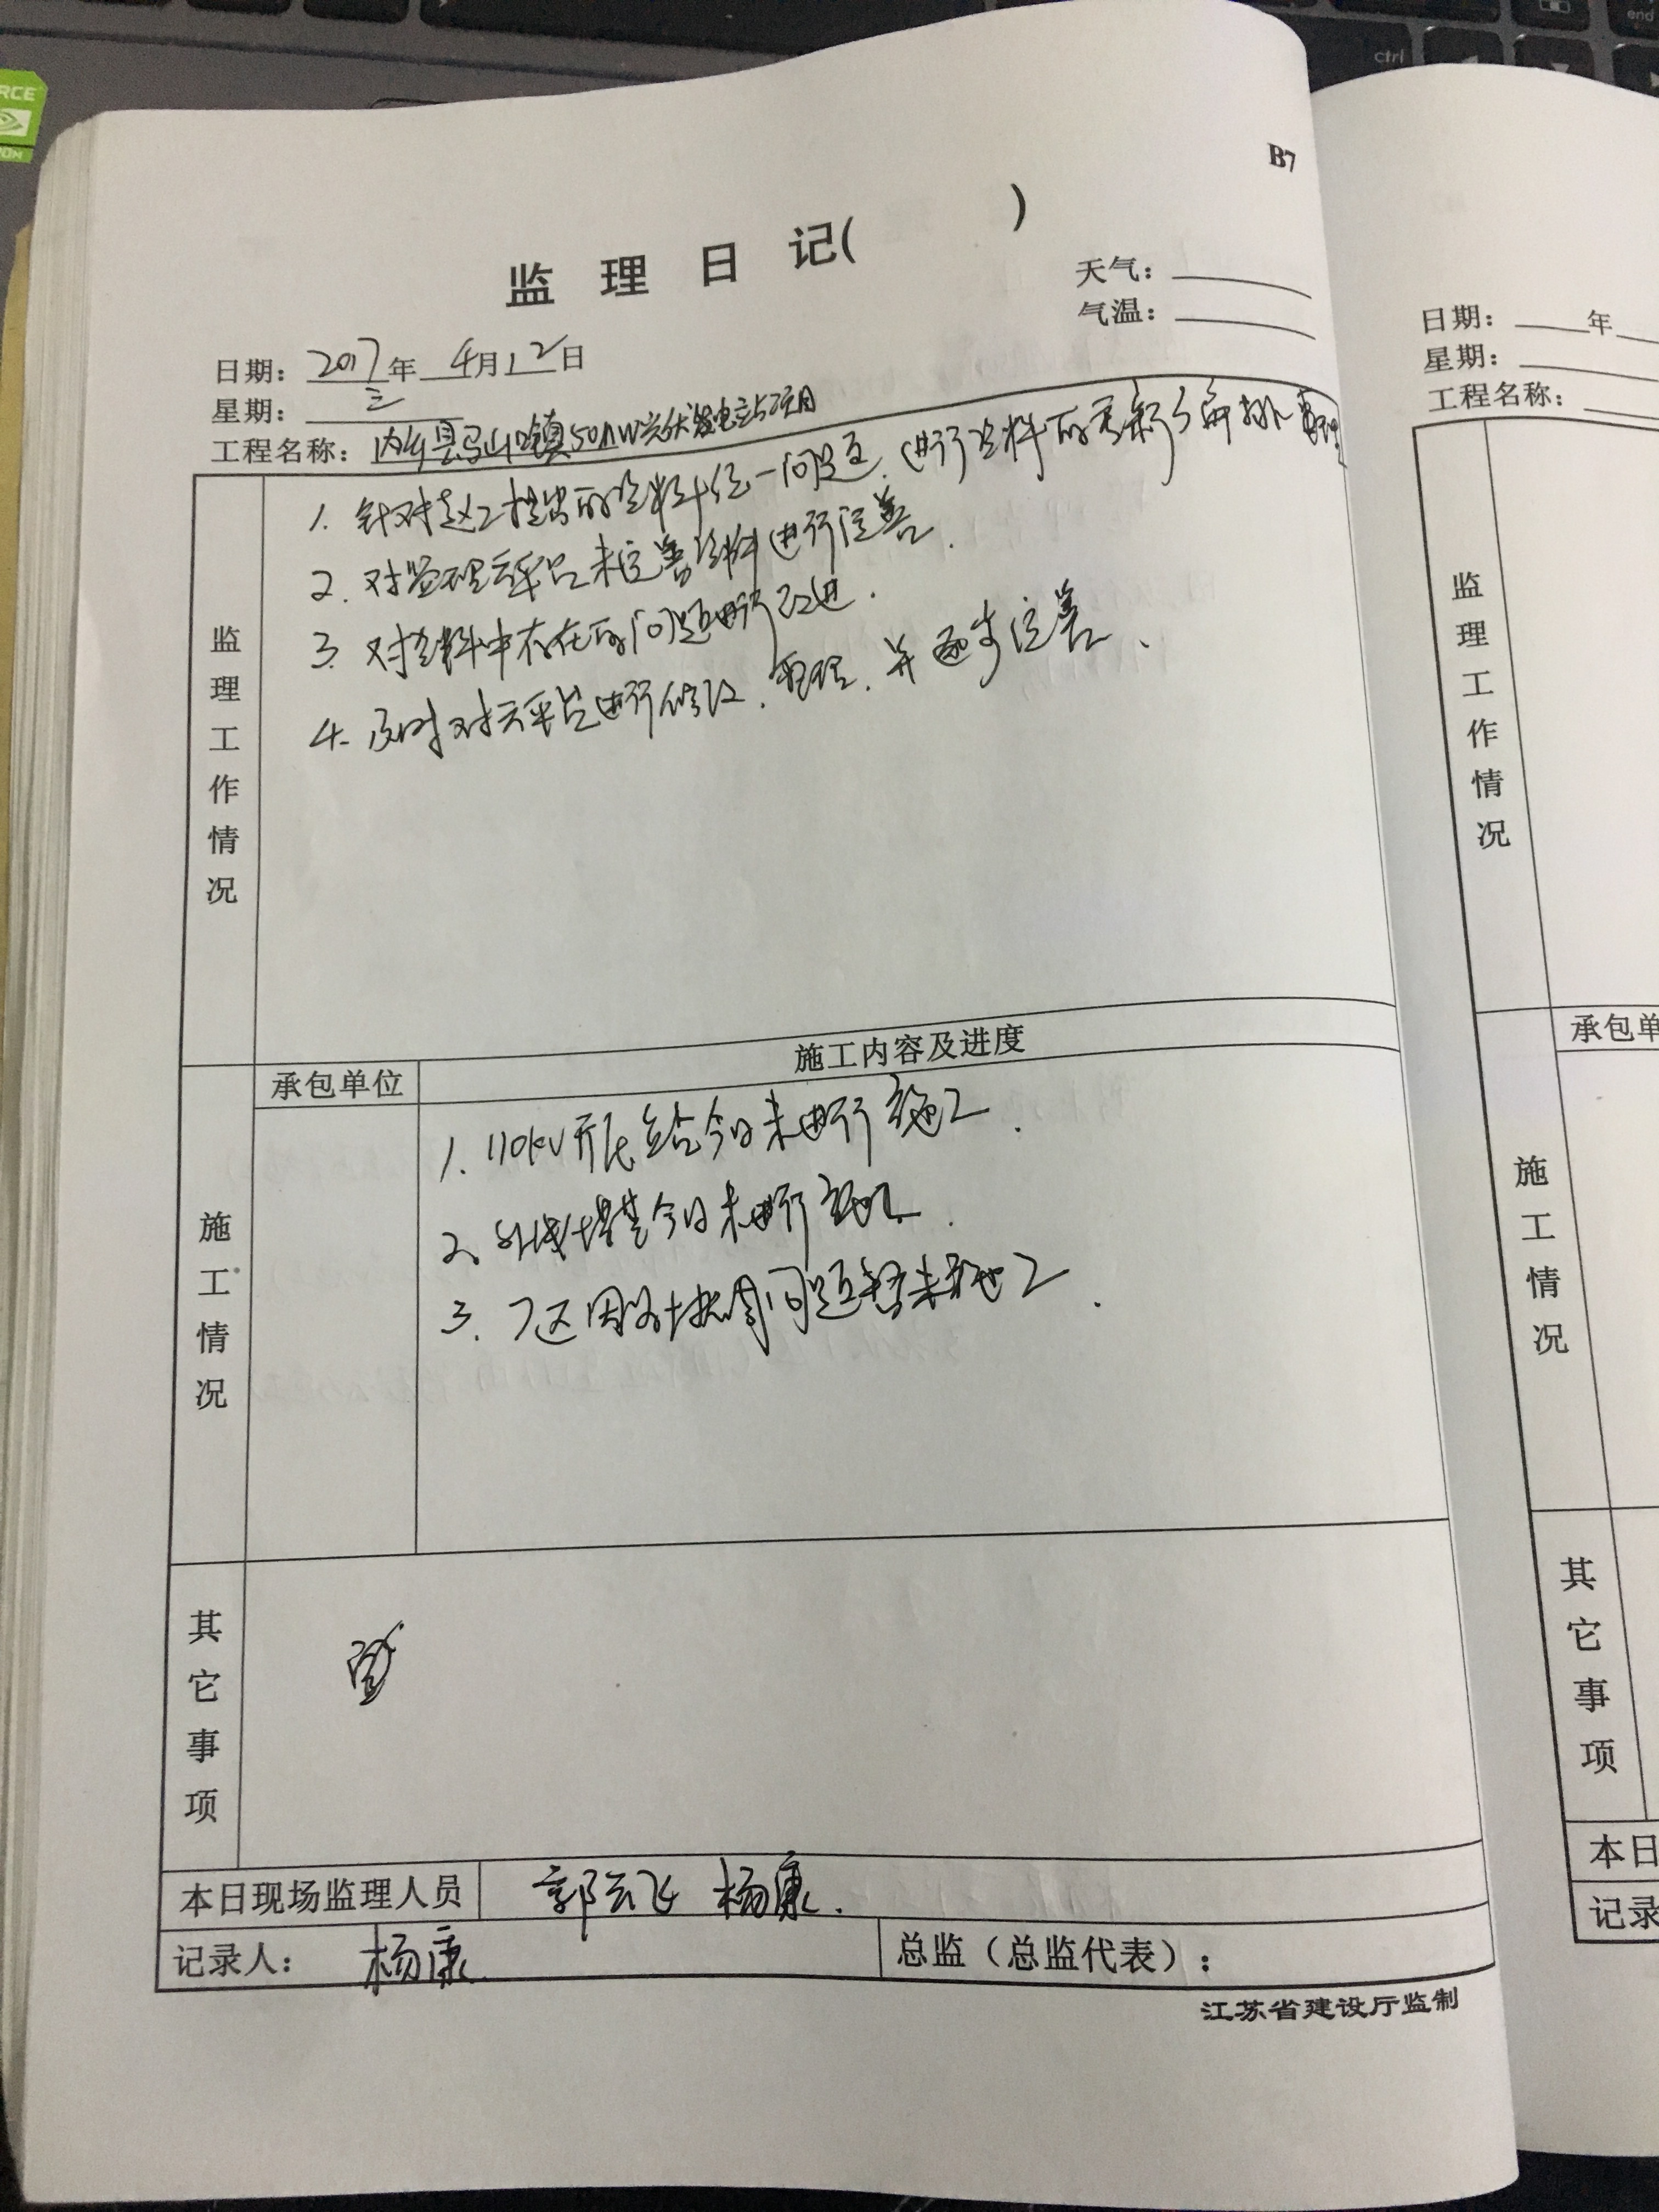 end
ctrl
RCE
B7
监 理 日 记( )
天气:
气温:
日期: 2017年 4月12日
星期: 三
工程名称: 内乡县马山口镇50MW光伏发电站项目
监理工作情况
1. 针对赵工提出的资料统一问题,进行资料的重新编排整理
2. 对监理平台未完善资料进行完善.
3. 对资料中存在的问题进行改进.
4. 及时对云平台进行修改、整理,并逐步完善.
施工情况
承包单位
施工内容及进度
1. 110kV开关站今日未进行施工.
2、外线塔基今日未进行施工.
3. 7区因地块问题暂未施工.
其它事项
本日现场监理人员 郭云飞 杨康.
记录人: 杨康.
总监(总监代表):
江苏省建设厅监制
日期: 年
星期:
工程名称:
监理工作情况
承包单
施工情况
其它事项
本日
记录